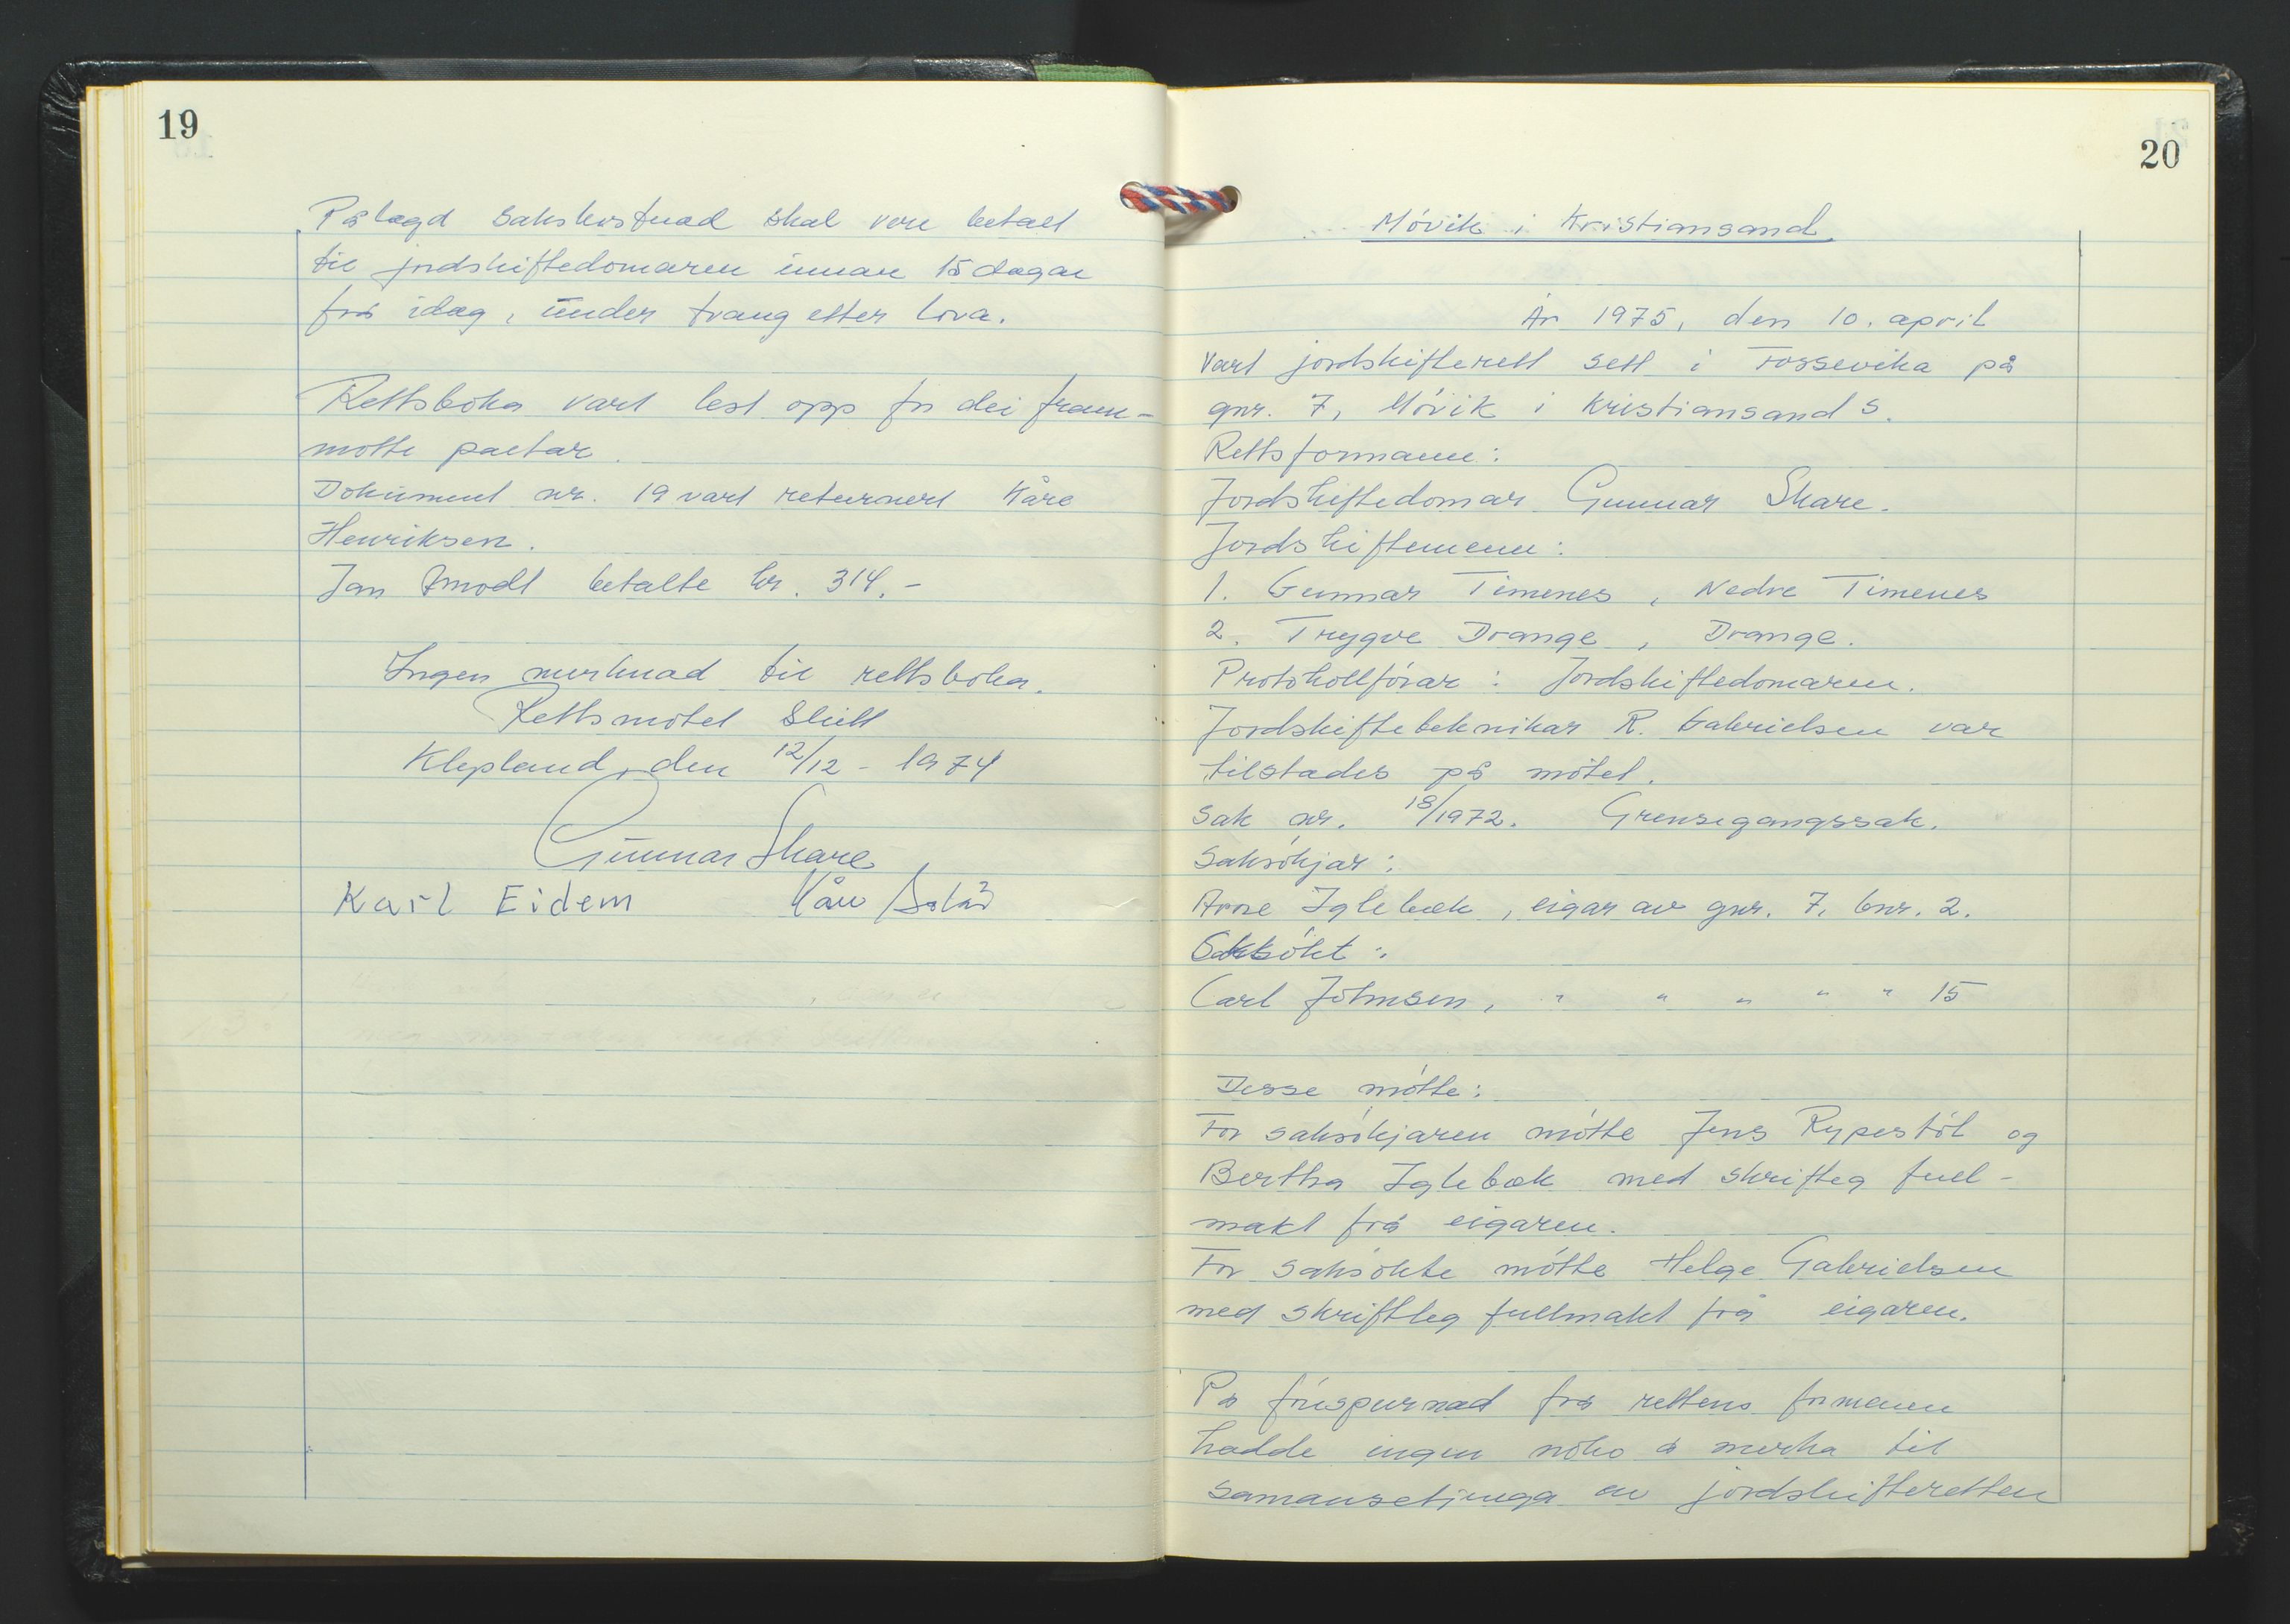 19
Pålagd sakskostnad skal vere betalt
til jordskiftedomaren innan 15 dagar
frå idag, under tvang etter lova.
Rettsboka vart lest opp for dei fram-
møtte partar.
Dokument nr. 19 vart returnert Kåre
Henriksen.
Jan Omdal betalte kr. 314.-
Ingen merknad til rettsboka.
Rettsmøtet slutt
Klepland, den 12/12 - 1974
Gunnar Skare
Karl Eidem Kåre
20
Móvik i Kristiansand.
År 1975, den 10. april
vart jordskifterett sett i Fossevika på
gnr. 7, Móvik i Kristiansand S.
Rettsformann:
Jordskiftedomar Gunnar Skare.
Jordskiftemenn:
1. Gunnar Timenes, Nedre Timenes
2. Trygve Drange, Drange.
Protokollfórar: Jordskiftedomaren.
Jordskifteteknikar R. Gabrielsen var
tilstades på mótet.
Sak nr. 18/1972. Grensegangssak.
Saksókjar:
Arne Iglebæk, eigar av gnr. 7, bnr. 2.
Saksókt:
Carl Johnsen, " " " " " 15
Desse mótte:
For saksókjaren mótte Jens Rypestól og
Bertha Iglebæk med skrifteg full-
makt frå eigaren.
For saksókte mótte Helge Gabrielsen
med skriftleg fullmakt frå eigaren.
På fórespurnad frå rettens formann
hadde ingen noko å merka til
samansetjinga av jordskifteretten